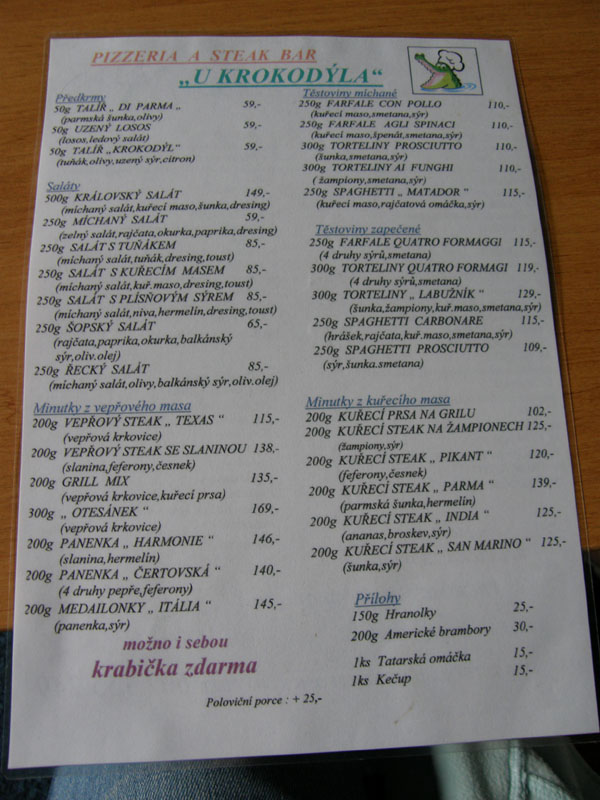 PIZZERIA A STEAK BAR
„U KROKODÝLA“
Předkrmy
50g TALÍŘ „ DI PARMA „ 59,-
(parmská šunka,olivy)
50g UZENÝ LOSOS 59,-
(losos,ledový salát)
50g TALÍŘ „KROKODÝL“ 59,-
(tuňák,olivy,uzený sýr,citron)
Saláty
500g KRÁLOVSKÝ SALÁT 149,-
(míchaný salát,kuřecí maso,šunka,dresing)
250g MÍCHANÝ SALÁT 59,-
(zelný salát,rajčata,okurka,paprika,dresing)
250g SALÁT S TUŇÁKEM 85,-
(míchaný salát,tuňák,dresing,toust)
250g SALÁT S KUŘECÍM MASEM 85,-
(míchaný salát,kuř.maso,dresing,toust)
250g SALÁT S PLÍSŇOVÝM SÝREM 85,-
(míchaný salát,niva,hermelín,dresing,toust)
250g ŠOPSKÝ SALÁT 65,-
(rajčata,paprika,okurka,balkánský
sýr,oliv.olej)
250g ŘECKÝ SALÁT 85,-
(míchaný salát,olivy,balkánský sýr,oliv.olej)
Minutky z vepřového masa
200g VEPŘOVÝ STEAK „ TEXAS “ 115,-
(vepřová krkovice)
200g VEPŘOVÝ STEAK SE SLANINOU 138,-
(slanina,feferony,česnek)
200g GRILL MIX 135,-
(vepřová krkovice,kuřecí prsa)
300g „ OTESÁNEK “ 169,-
(vepřová krkovice)
200g PANENKA „ HARMONIE “ 146,-
(slanina,hermelín)
200g PANENKA „ ČERTOVSKÁ “ 140,-
(4 druhy pepře,feferony)
200g MEDAILONKY „ ITÁLIA “ 145,-
(panenka,sýr)
možno i sebou
krabička zdarma
Těstoviny míchané
250g FARFALE CON POLLO 110,-
(kuřecí maso,smetana,sýr)
250g FARFALE AGLI SPINACI 110,-
(kuřecí maso,špenát,smetana,sýr)
300g TORTELINY PROSCIUTTO 110,-
(šunka,smetana,sýr)
300g TORTELINY AI FUNGHI 110,-
( žampiony,smetana,sýr)
250g SPAGHETTI „ MATADOR “ 115,-
(kuřecí maso,rajčatová omáčka,sýr)
Těstoviny zapečené
250g FARFALE QUATRO FORMAGGI 115,-
(4 druhy sýrů,smetana)
300g TORTELINY QUATRO FORMAGI 119,-
(4 druhy sýrů,smetana)
300g TORTELINY „ LABUŽNÍK “ 129,-
(šunka,žampiony,kuř.maso,smetana,sýr)
250g SPAGHETTI CARBONARE 115,-
(hrášek,rajčata,kuř.maso,smetana,sýr)
250g SPAGHETTI PROSCIUTTO 109,-
(sýr,šunka.smetana)
Minutky z kuřecího masa
200g KUŘECÍ PRSA NA GRILU 102,-
200g KUŘECÍ STEAK NA ŽAMPIONECH 125,-
(žampiony,sýr)
200g KUŘECÍ STEAK „ PIKANT “ 120,-
(feferony,česnek)
200g KUŘECÍ STEAK „ PARMA “ 139,-
(parmská šunka,hermelín)
200g KUŘECÍ STEAK „ INDIA “ 125,-
(ananas,broskev,sýr)
200g KUŘECÍ STEAK „ SAN MARINO “ 125,-
(šunka,sýr)
Přílohy
150g Hranolky 25,-
200g Americké brambory 30,-
1ks Tatarská omáčka 15,-
1ks Kečup 15,-
Poloviční porce : + 25,-